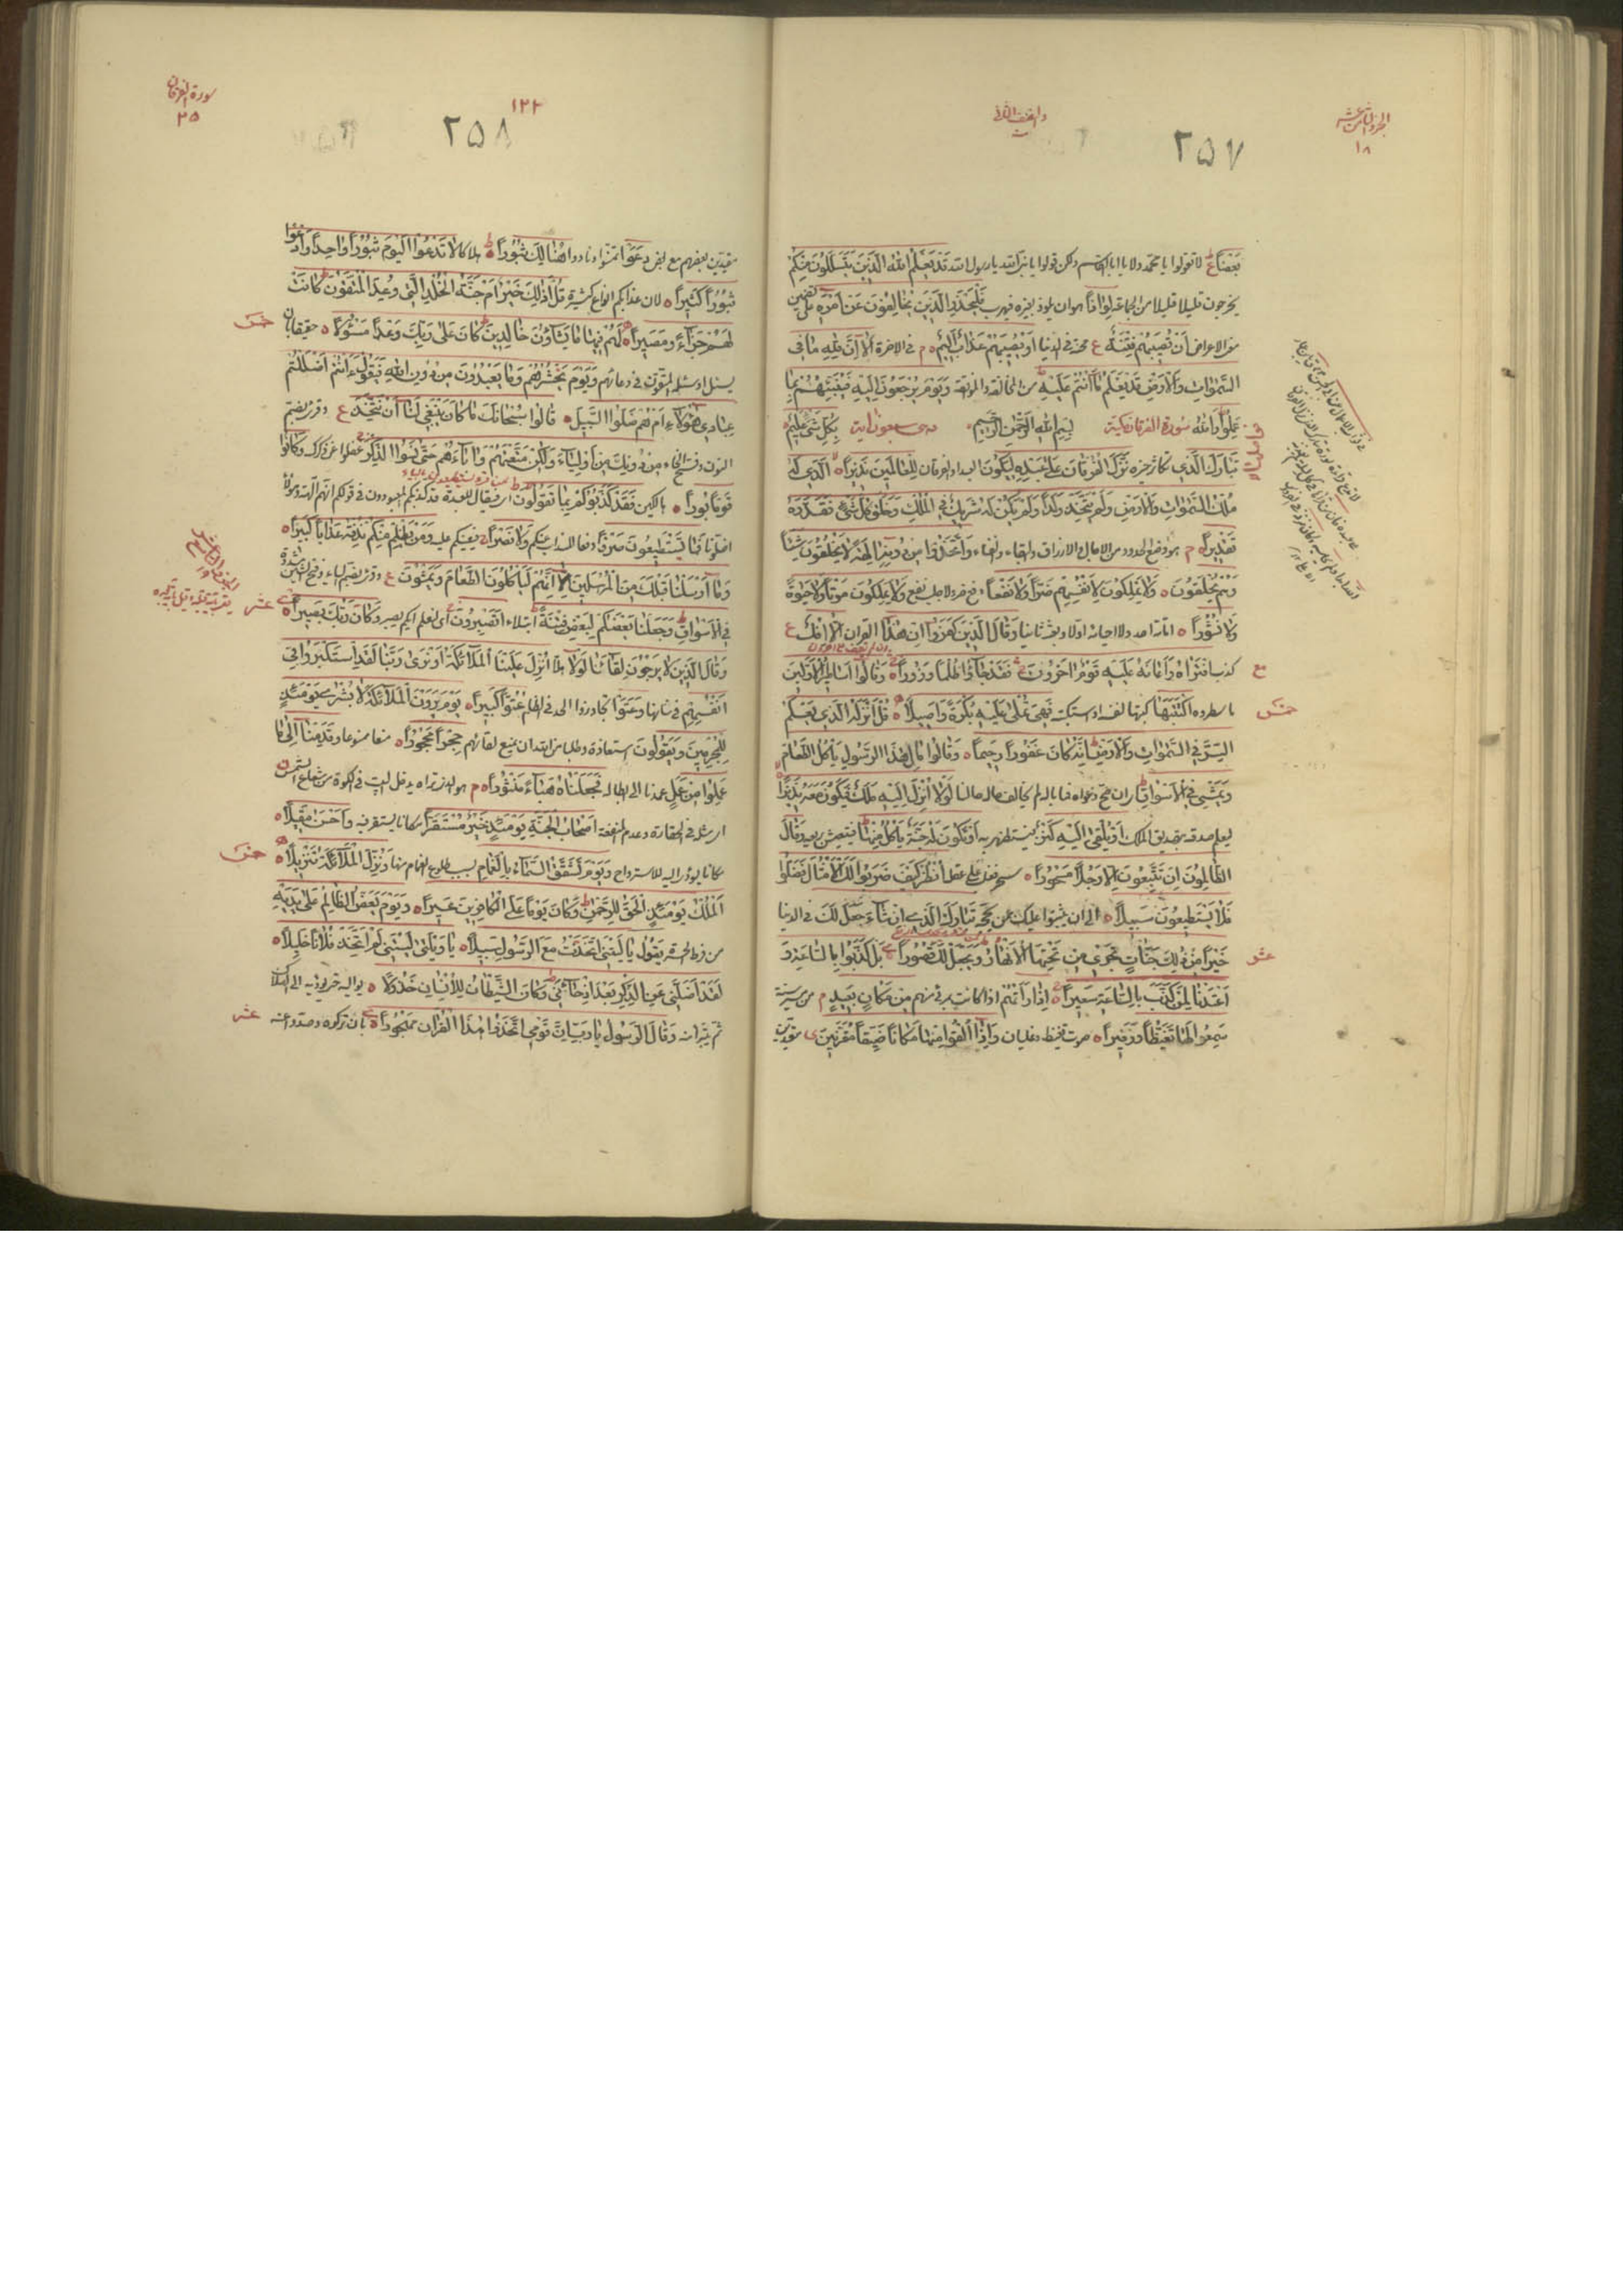 الجزء الثامن عشر
١٨
والنصف الثاني
٢٥٧
بَعْضاً لا تقولوا يا محمد ولا يا ابا القاسم ولكن قولوا يا نبي الله يا رسول الله قَدْ يَعْلَمُ اللهُ الَّذينَ يَتَسَلَّلُونَ مِنْكُمْ
يخرجون قليلا قليلا من الجماعة لِواذاً هو ان يلوذ بغيره فيهرب فَلْيَحْذَرِ الَّذينَ يُخالِفُونَ عَنْ اَمْرِه
الاعراض اَنْ تُصيبَهُمْ فِتْنَةٌ محنة في الدنيا اَوْ يُصيبَهُمْ عَذابٌ اَليمٌ في الاخرة اَلا اِنَّ لِلّهِ ما فِي
السَّمواتِ وَالْاَرْضِ قَدْ يَعْلَمُ ما اَنْتُمْ عَلَيْهِ من المخالفة والموافقة وَيَوْمَ يُرْجَعُونَ اِلَيْهِ فَيُنَبِّئُهُمْ بِما
عَمِلُوا وَاللهُ سورة الفرقان مكية بِسْمِ اللهِ الرَّحْمنِ الرَّحيمِ وهي سبعون اية بِكُلِّ شَيْءٍ عَليمٌ
تَبارَكَ الَّذي تكاثر خيره نَزَّلَ الْفُرْقانَ عَلى عَبْدِه لِيَكُونَ العبد او الفرقان لِلْعالَمينَ نَذيراً اَلَّذي لَهُ
مُلْكُ السَّمواتِ وَالْاَرْضِ وَلَمْ يَتَّخِذْ وَلَداً وَلَمْ يَكُنْ لَهُ شَريكٌ فِي الْمُلْكِ وَخَلَقَ كُلَّ شَيْءٍ فَقَدَّرَهُ
تَقْديراً هو وضع الحدود من الاجال والارزاق والبقاء والفناء وَاتَّخَذُوا مِنْ دُونِه الِهَةً لا يَخْلُقُونَ شَيْئاً
وَهُمْ يُخْلَقُونَ وَلا يَمْلِكُونَ لِاَنْفُسِهِمْ ضَرّاً وَلا نَفْعاً دفع ضر ولا جلب نفع وَلا يَمْلِكُونَ مَوْتاً وَلا حَيوةً
وَلا نُشُوراً اماتة احد ولا احيائه اولا وبعثه ثانيا وَقالَ الَّذينَ كَفَرُوا اِنْ هذا القران اِلَّا اِفْكٌ
كذب افْتَراهُ وَاَعانَهُ عَلَيْهِ قَوْمٌ اخَرُونَ فَقَدْ جاؤُا ظُلْماً وَزُوراً وَقالُوا اَساطيرُ الْاَوَّلينَ
ما سطروه اكْتَتَبَها كتبها لنفسه او استكتبه فَهِيَ تُمْلى عَلَيْهِ بُكْرَةً وَاَصيلاً قُلْ اَنْزَلَهُ الَّذي يَعْلَمُ
السِّرَّ فِي السَّمواتِ وَالْاَرْضِ اِنَّهُ كانَ غَفُوراً رَحيماً وَقالُوا مالِ هذَا الرَّسُولِ يَأْكُلُ الطَّعامَ
وَيَمْشي فِي الْاَسْواقِ ان صح دعواه فما باله لم يخالف حاله حالنا لَوْلا اُنْزِلَ اِلَيْهِ مَلَكٌ فَيَكُونَ مَعَهُ نَذيراً
ليعلم صدقه بتصديق الملك اَوْ يُلْقى اِلَيْهِ كَنْزٌ فيستظهر به اَوْ تَكُونُ لَهُ جَنَّةٌ يَأْكُلُ مِنْها فيتعيش بريعه وَقالَ
الظّالِمُونَ اِنْ تَتَّبِعُونَ اِلّا رَجُلاً مَسْحُوراً سحر فغلب على عقله اُنْظُرْ كَيْفَ ضَرَبُوا لَكَ الْاَمْثالَ فَضَلُّوا
فَلا يَسْتَطيعُونَ سَبيلاً الى ان يثبتوا عليك حجة تَبارَكَ الَّذي اِنْ شاءَ جَعَلَ لَكَ في الدنيا
خَيْراً مِنْ ذلِكَ جَنّاتٍ تَجْري مِنْ تَحْتِهَا الْاَنْهارُ وَيَجْعَلْ لَكَ قُصُوراً بَلْ كَذَّبُوا بِالسّاعَةِ وَ
اَعْتَدْنا لِمَنْ كَذَّبَ بِالسّاعَةِ سَعيراً اِذا رَاَتْهُمْ اذا كانت بمرئى منهم مِنْ مَكانٍ بَعيدٍ من مسيرة سنة
سَمِعُوا لَها تَغَيُّظاً وَزَفيراً صوت تغيظ وغليان وَاِذا اُلْقُوا مِنْها مَكاناً ضَيِّقاً مُقَرَّنينَ
خمس
عشر
سورة الفرقان
٢٥
١٢٢
٢٥٨
بعضهم مع بعض دَعَوْا تمنوا ونادوا هُنالِكَ ثُبُوراً هلاكا لا تَدْعُوا الْيَوْمَ ثُبُوراً واحِداً وَادْعُوا
ثُبُوراً كَثيراً لان عذابكم انواع كثيرة قُلْ اَذلِكَ خَيْرٌ اَمْ جَنَّةُ الْخُلْدِ الَّتي وُعِدَ الْمُتَّقُونَ كانَتْ
لَهُمْ جَزاءً وَمَصيراً لَهُمْ فيها ما يَشاؤُنَ خالِدينَ كانَ عَلى رَبِّكَ وَعْداً مَسْؤُلاً حقيقا بان
يسئل او سئله المتقون في دعائهم وَيَوْمَ يَحْشُرُهُمْ وَما يَعْبُدُونَ مِنْ دُونِ اللهِ فَيَقُولُ ءَاَنْتُمْ اَضْلَلْتُمْ
عِبادي هؤُلاءِ اَمْ هُمْ ضَلُّوا السَّبيلَ قالُوا سُبْحانَكَ ما كانَ يَنْبَغي لَنا اَنْ نَتَّخِذَ وقرئ بضم
النون وفتح الخاء مِنْ دُونِكَ مِنْ اَوْلِياءَ وَلكِنْ مَتَّعْتَهُمْ وَاباءَهُمْ حَتّى نَسُوا الذِّكْرَ غفلوا عن ذكرك وَكانُوا
قَوْماً بُوراً هالكين فَقَدْ كَذَّبُوكُمْ بِما تَقُولُونَ اي فيقال للعبدة قد كذبكم المعبودون في قولكم انهم الهة وهؤلاء
اضلونا فَما يَسْتَطيعُونَ صَرْفاً دفعا للعذاب عنكم وَلا نَصْراً فيعينكم عليه وَمَنْ يَظْلِمْ مِنْكُمْ نُذِقْهُ عَذاباً كَبيراً
وَما اَرْسَلْنا قَبْلَكَ مِنَ الْمُرْسَلينَ اِلّا اِنَّهُمْ لَيَأْكُلُونَ الطَّعامَ وَيَمْشُونَ وقرئ بضم الياء وفتح الشين مشددة
فِي الْاَسْواقِ وَجَعَلْنا بَعْضَكُمْ لِبَعْضٍ فِتْنَةً ابتلاء اَتَصْبِرُونَ اي لنعلم ايكم يصبر وَكانَ رَبُّكَ بَصيراً
وَقالَ الَّذينَ لا يَرْجُونَ لِقاءَنا لَوْلا هلا اُنْزِلَ عَلَيْنَا الْمَلائِكَةُ اَوْ نَرى رَبَّنا لَقَدِ اسْتَكْبَرُوا في
اَنْفُسِهِمْ في شانها وَعَتَوْا تجاوزوا الحد في الظلم عُتُوّاً كَبيراً يَوْمَ يَرَوْنَ الْمَلائِكَةَ لا بُشْرى يَوْمَئِذٍ
لِلْمُجْرِمينَ وَيَقُولُونَ استعاذة وطلبا من الله ان يمنع لقائهم حِجْراً مَحْجُوراً منعا ممنوعا وَقَدِمْنا اِلى ما
عَمِلُوا مِنْ عَمَلٍ عمدنا الى ابطاله فَجَعَلْناهُ هَباءً مَنْثُوراً هو الذي تراه يدخل البيت في الكوة من شعاع الشمس
اي مثله في الحقارة وعدم المنفعة اَصْحابُ الْجَنَّةِ يَوْمَئِذٍ خَيْرٌ مُسْتَقَرّاً مكانا يستقر فيه وَاَحْسَنُ مَقيلاً
مكانا يؤوى اليه للاسترواح وَيَوْمَ تَشَقَّقُ السَّماءُ بِالْغَمامِ بسبب طلوع الغمام منها وَنُزِّلَ الْمَلائِكَةُ تَنْزيلاً
اَلْمُلْكُ يَوْمَئِذٍ الْحَقُّ لِلرَّحْمنِ وَكانَ يَوْماً عَلَى الْكافِرينَ عَسيراً وَيَوْمَ يَعَضُّ الظّالِمُ عَلى يَدَيْهِ
من فرط الحسرة يَقُولُ يا لَيْتَنِي اتَّخَذْتُ مَعَ الرَّسُولِ سَبيلاً يا وَيْلَتى لَيْتَني لَمْ اَتَّخِذْ فُلاناً خَليلاً
لَقَدْ اَضَلَّني عَنِ الذِّكْرِ بَعْدَ اِذْ جاءَني وَكانَ الشَّيْطانُ لِلْاِنْسانِ خَذُولاً يواليه حتى يؤديه الى الهلاك
ثم يتركه وَقالَ الرَّسُولُ يا رَبِّ اِنَّ قَوْمِي اتَّخَذُوا هذَا الْقُرْانَ مَهْجُوراً بان تركوه وصدوا عنه
خمس
عشر
الجزء التاسع عشر
خمس
عشر